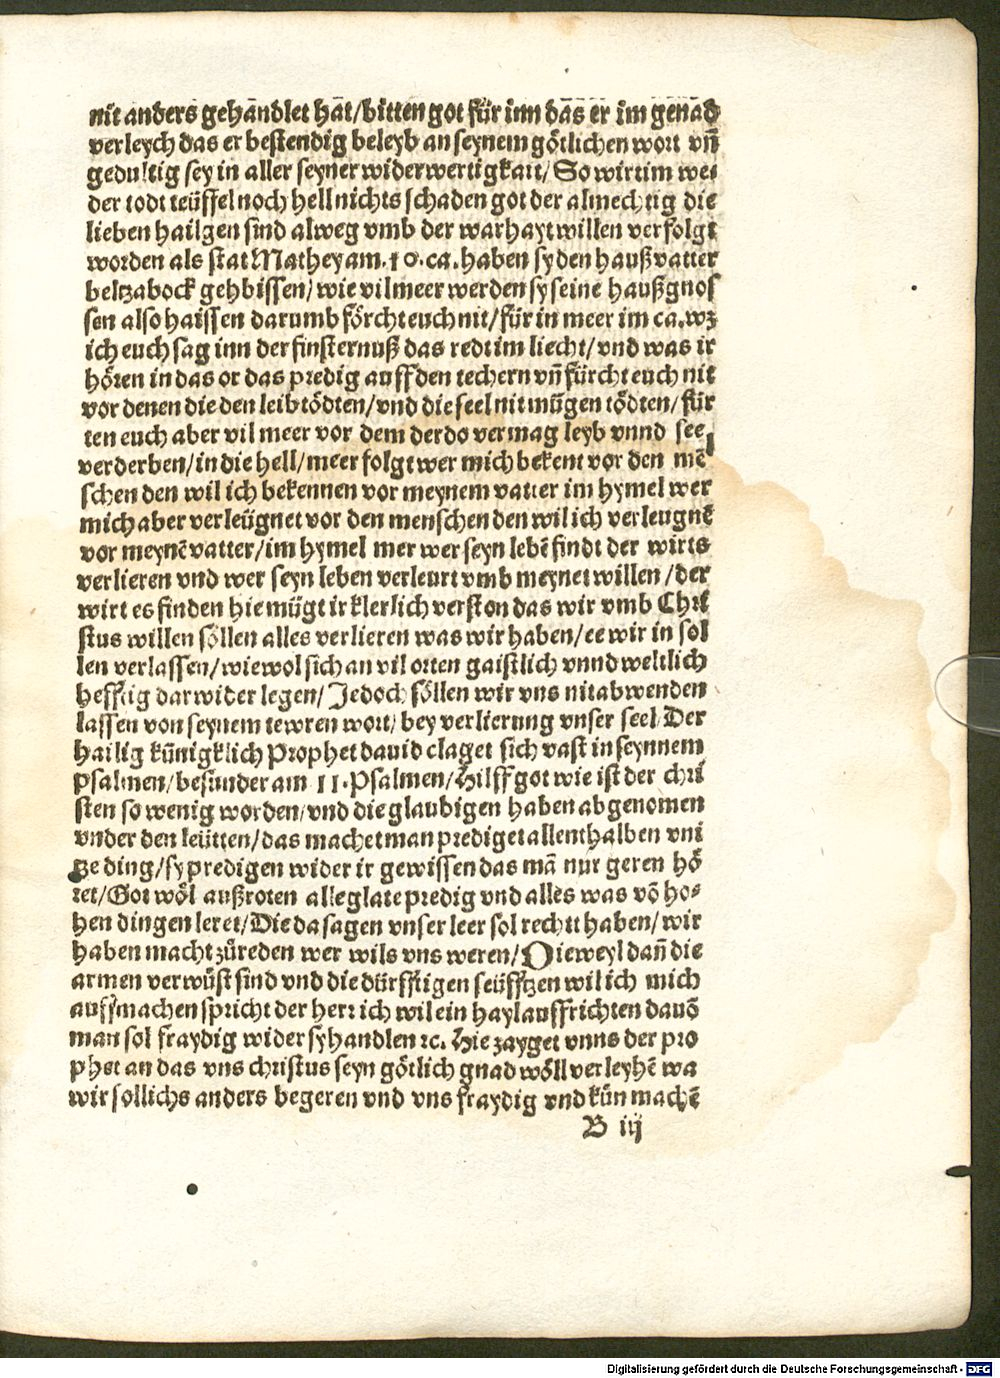 nit anders gehandlet hat/bitten got für inn das er im genad
verleych das er bestendig beleyb an seynem götlichen wort vñ
gedultig sey in aller seyner widerwertigkait/ So wirt im we-
der todt teüffel noch hell nichts schaden got der almechtig die
lieben hailgen sind alweg vmb der warhayt willen verfolgt
worden als stat Mathey am .10. ca. haben sy den haußvatter
beltzabock gehbissen/ wie vil meer werden sy seine haußgnos
sen also haissen darumb förcht euch nit/ für in meer im ca. wz
ich euch sag inn der finsternuß das redt im liecht/ vnd was ir
hören in das or das predig auff den techern vñ fürcht euch nit
vor denen die den leib tödten/ vnd die seel nit mügen tödten/ für
ten euch aber vil meer vor dem der do vermag leyb vnnd seel
verderben/ in die hell/ meer folgt wer mich bekent vor den mẽ
schen den wil ich bekennen vor meynem vatter im hymel wer
mich aber verleügnet vor den menschen den wil ich verleugnẽ
vor meynẽ vatter/ im hymel mer wer seyn lebẽ findt der wirts
verlieren vnd wer seyn leben verleurt vmb meynet willen/ der
wirt es finden hie mügt ir klerlich verston das wir vmb Chri
stus willen söllen alles verlieren was wir haben/ ee wir in sol
len verlassen/ wiewol sich an vil orten gaistlich vnnd weltlich
hefftig darwider legen/ Jedoch söllen wir vns nit abwenden
lassen von seynem tewren wort/ bey verlierung vnser seel Der
hailig künigklich Prophet dauid claget sich vast in seynnem
Psalmen/ besunder am 11. Psalmen/ Hilff got wie ist der chri
sten so wenig worden/ vnd die glaubigen haben abgenomen
vnder den leütten/ das machet man prediget allenthalben vni
tze ding/ sy predigen wider ir gewissen das mã nur geren hö
ret/ Got wöl außroten alle glate predig vnd alles was võ ho-
hen dingen leret/ Die da sagen vnser leer sol rechtt haben/ wir
haben macht zůreden wer wils vns weren/ Dieweyl dañ die
armen verwüst sind vnd die dürfftigen seüfftzen wil ich mich
auffmachen spricht der herr ich wil ein hayl auffrichten dauõ
man sol fraydig wider sy handlen ꝛc. Hie zayget vnns der pro
phet an das vns christus seyn götlich gnad wöll verleyhẽ wa
wir sollichs anders begeren vnd vns fraydig vnd kün machẽ
B iij
Digitalisierung gefördert durch die Deutsche Forschungsgemeinschaft - DFG